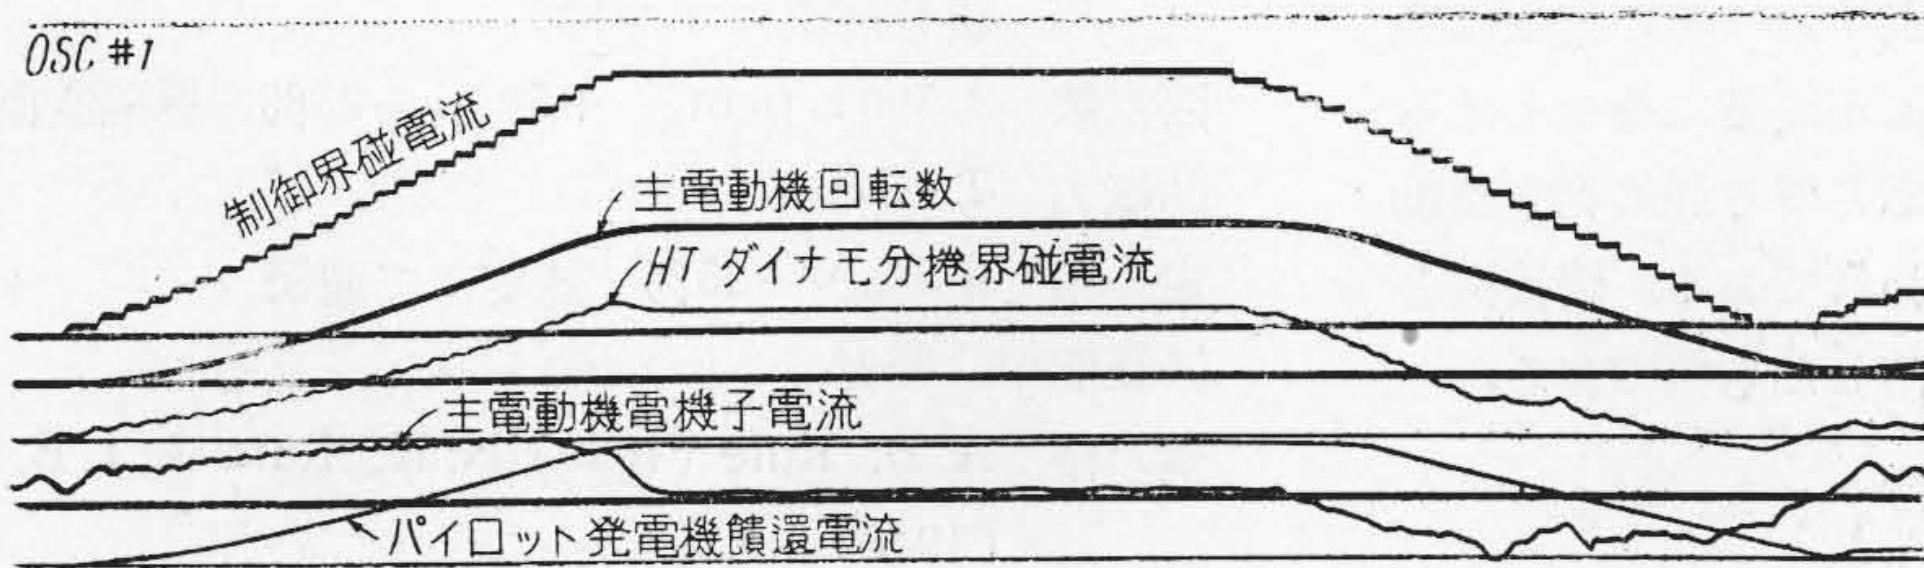 OSC #1
制御界磁電流
主電動機回転数
HT ダイナモ分捲界磁電流
主電動機電機子電流
パイロット発電機饋還電流